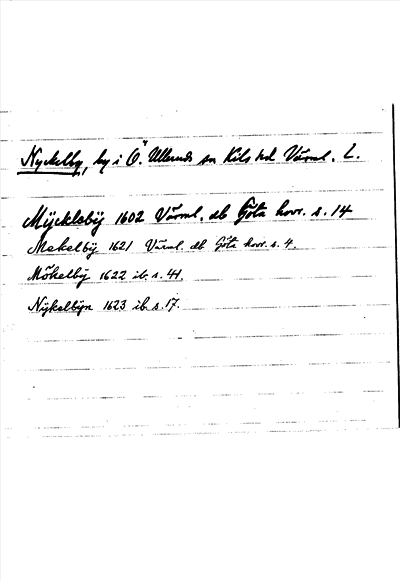 Nyckelby, by i Ö. Ulleruds sn Kils hd Värml. L.
Mÿcklebÿ 1602 Värml. db Göta hovr. s. 14
Mekelbÿ 1621 Värml. db Göta hovr. s. 4.
Mökelbÿ 1622 ib. s. 41.
Nÿkelbÿn 1623 ib. s. 17.